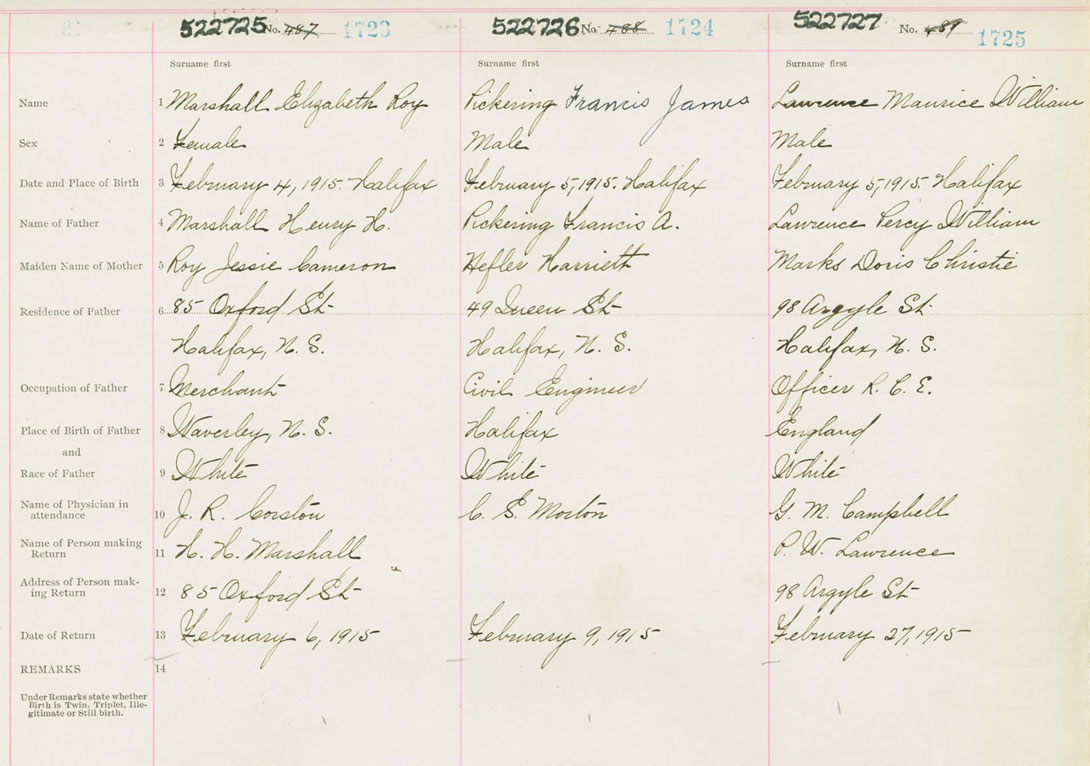 522725 No. 487 1723 522726 No. 488 1724 522727 No. 489 1725
Surname first Surname first Surname first
Name 1 Marshall Elizabeth Roy Pickering Francis James Lawrence Maurice William
Sex 2 Female Male Male
Date and Place of Birth 3 February 4, 1915. Halifax February 5, 1915. Halifax February 5, 1915. Halifax
Name of Father 4 Marshall Henry H. Pickering Francis A. Lawrence Percy William
Maiden Name of Mother 5 Roy Jessie Cameron Hefler Harriett Marks Doris Christie
Residence of Father 6 85 Oxford St 49 Queen St 98 Argyle St
Halifax, N. S. Halifax, N. S. Halifax, N. S.
Occupation of Father 7 Merchant Civil Engineer Officer R. C. E.
Place of Birth of Father 8 Waverley, N. S. Halifax England
and
Race of Father 9 White White White
Name of Physician in
attendance 10 J. R. Corston C. S. Morton G. M. Campbell
Name of Person making
Return 11 H. H. Marshall P. W. Lawrence
Address of Person mak-
ing Return 12 85 Oxford St 98 Argyle St
Date of Return 13 February 6, 1915 February 9, 1915 February 27, 1915
REMARKS 14
Under Remarks state whether
Birth is Twin, Triplet, Ille-
gitimate or Still birth.